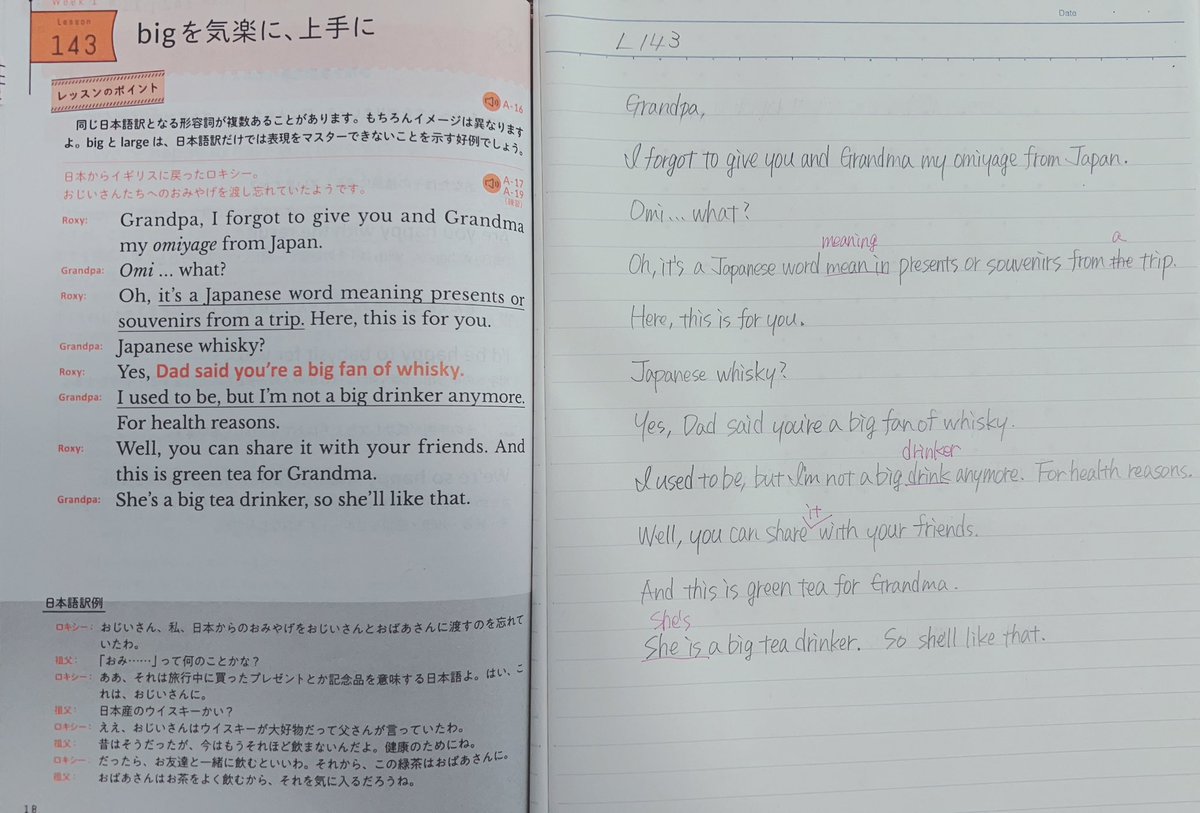 Week 1
Lesson
143
bigを気楽に、上手に
レッスンのポイント
A-16
同じ日本語訳となる形容詞が複数あることがあります。もちろんイメージは異なります
よ。bigとlargeは、日本語訳だけでは表現をマスターできないことを示す好例でしょう。
日本からイギリスに戻ったロキシー。
おじいさんたちへのおみやげを渡し忘れていたようです。
A-17
A-19
(練習)
Roxy: Grandpa, I forgot to give you and Grandma
my omiyage from Japan.
Grandpa: Omi ... what?
Roxy: Oh, it's a Japanese word meaning presents or
souvenirs from a trip. Here, this is for you.
Grandpa: Japanese whisky?
Roxy: Yes, Dad said you're a big fan of whisky.
Grandpa: I used to be, but I'm not a big drinker anymore.
For health reasons.
Roxy: Well, you can share it with your friends. And
this is green tea for Grandma.
Grandpa: She's a big tea drinker, so she'll like that.
日本語訳例
ロキシー: おじいさん、私、日本からのおみやげをおじいさんとおばあさんに渡すのを忘れて
いたわ。
祖父: 「おみ……」って何のことかな？
ロキシー: ああ、それは旅行中に買ったプレゼントとか記念品を意味する日本語よ。はい、こ
れは、おじいさんに。
祖父: 日本産のウイスキーかい？
ロキシー: ええ、おじいさんはウイスキーが大好物だって父さんが言っていたわ。
祖父: 昔はそうだったが、今はもうそれほど飲まないんだよ。健康のためにね。
ロキシー: だったら、お友達と一緒に飲むといいわ。それから、この緑茶はおばあさんに。
祖父: おばあさんはお茶をよく飲むから、それを気に入るだろうね。
18
Date
L143
Grandpa,
I forgot to give you and Grandma my omiyage from Japan.
Omi... what?
meaning a
Oh, it's a Japanese word mean in presents or souvenirs from the trip.
Here, this is for you.
Japanese whisky?
Yes, Dad said you're a big fan of whisky.
drinker
I used to be, but I'm not a big drink anymore. For health reasons.
it
Well, you can share with your friends.
And this is green tea for Grandma.
She's
She is a big tea drinker. So shell like that.